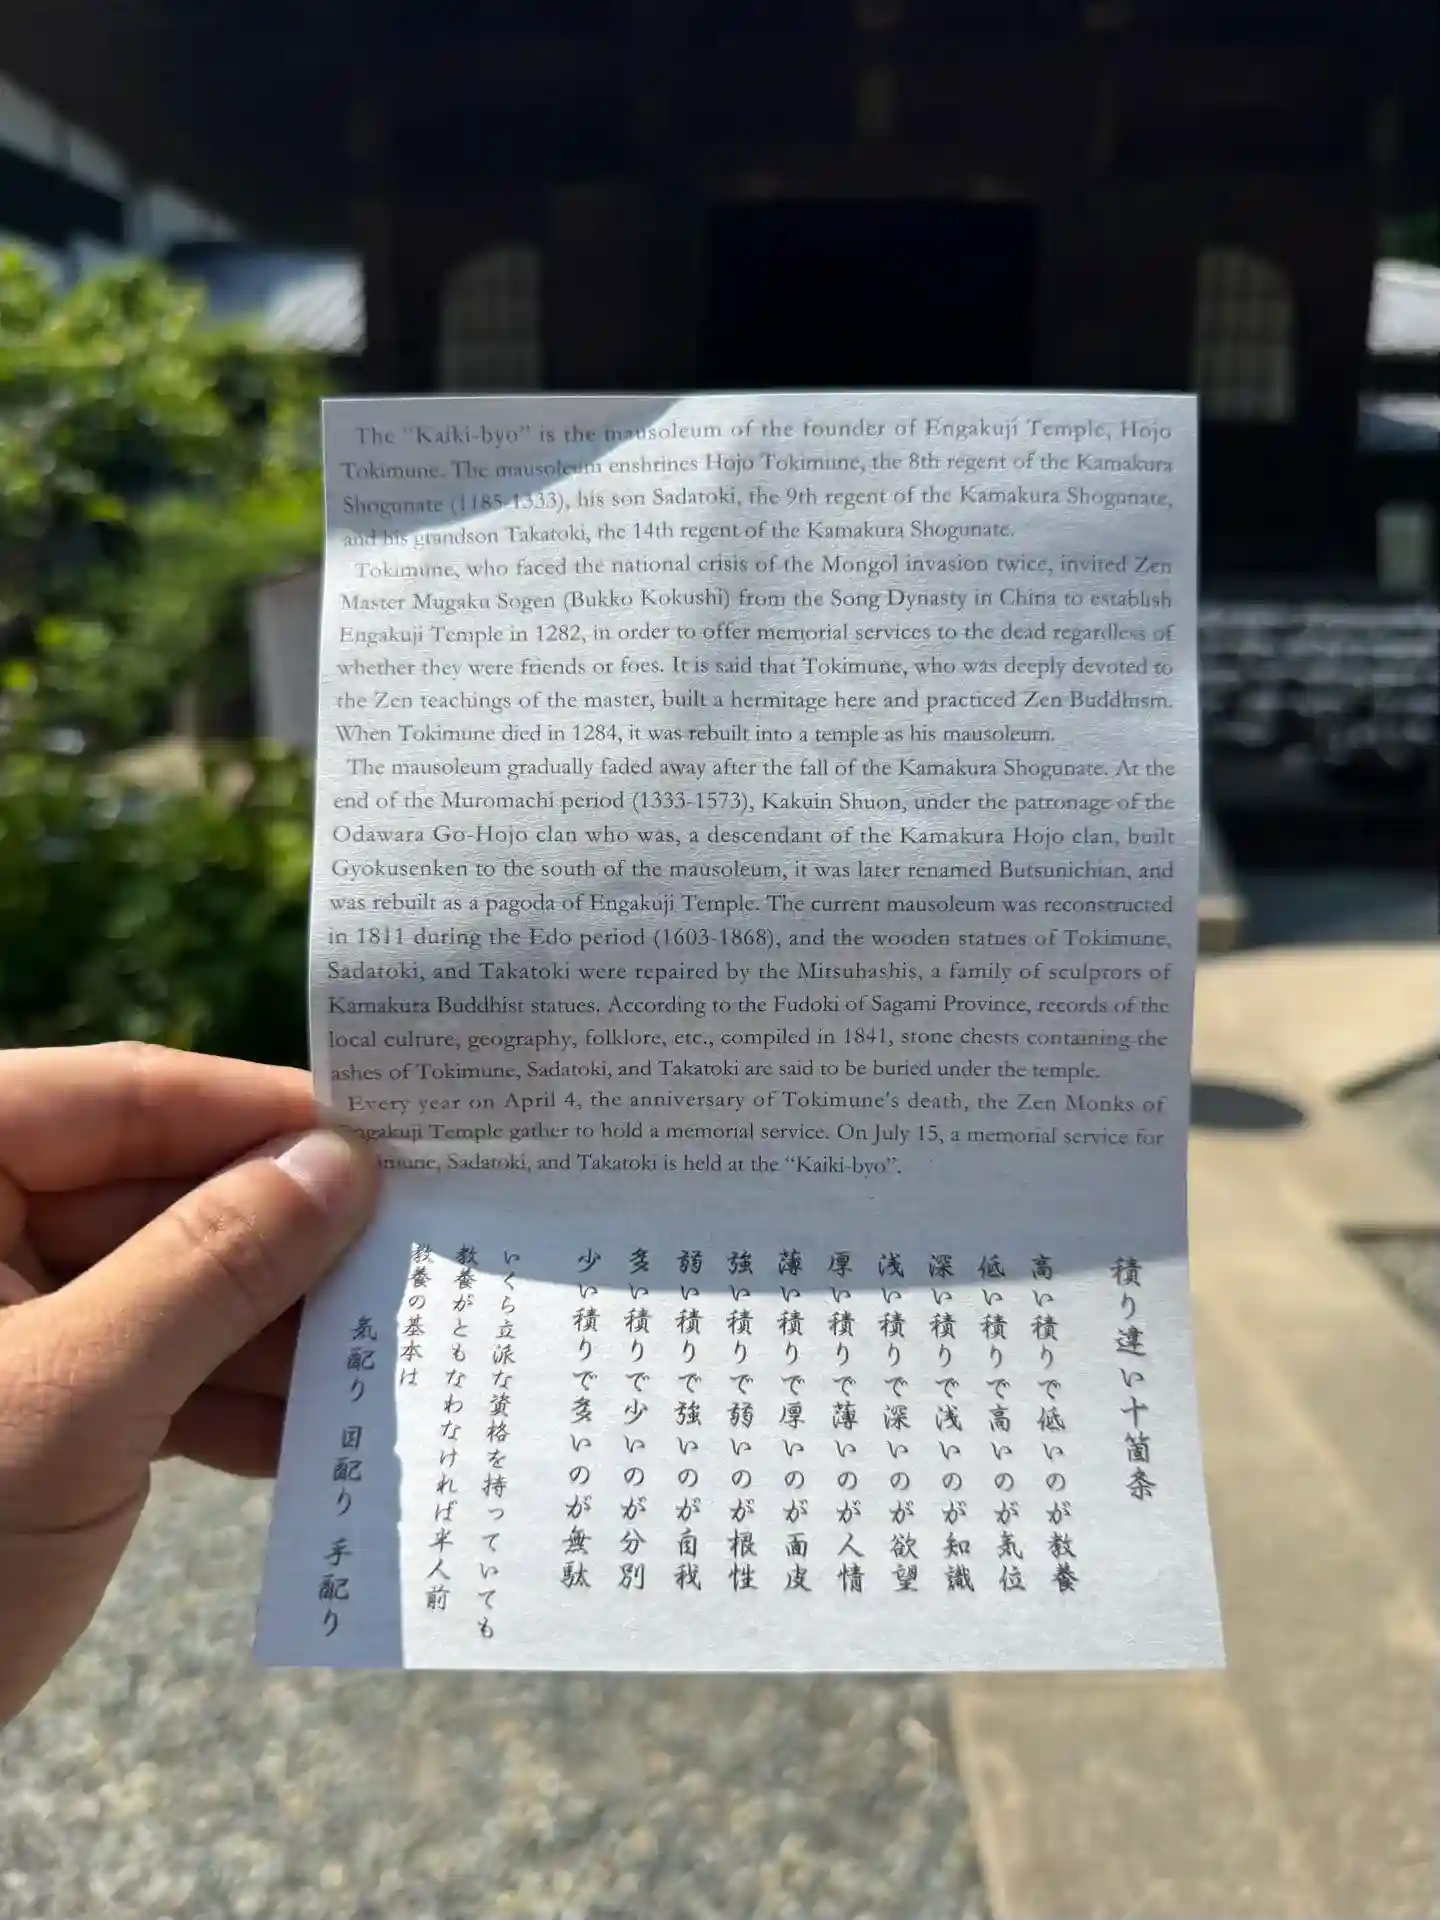 The "Kaiki-byo" is the mausoleum of the founder of Engakuji Temple, Hojo
Tokimune. The mausoleum enshrines Hojo Tokimune, the 8th regent of the Kamakura
Shogunate (1185-1333), his son Sadatoki, the 9th regent of the Kamakura Shogunate,
and his grandson Takatoki, the 14th regent of the Kamakura Shogunate.
Tokimune, who faced the national crisis of the Mongol invasion twice, invited Zen
Master Mugaku Sogen (Bukko Kokushi) from the Song Dynasty in China to establish
Engakuji Temple in 1282, in order to offer memorial services to the dead regardless of
whether they were friends or foes. It is said that Tokimune, who was deeply devoted to
the Zen teachings of the master, built a hermitage here and practiced Zen Buddhism.
When Tokimune died in 1284, it was rebuilt into a temple as his mausoleum.
The mausoleum gradually faded away after the fall of the Kamakura Shogunate. At the
end of the Muromachi period (1333-1573), Kakuin Shuon, under the patronage of the
Odawara Go-Hojo clan who was, a descendant of the Kamakura Hojo clan, built
Gyokusenken to the south of the mausoleum, it was later renamed Butsunichian, and
was rebuilt as a pagoda of Engakuji Temple. The current mausoleum was reconstructed
in 1811 during the Edo period (1603-1868), and the wooden statues of Tokimune,
Sadatoki, and Takatoki were repaired by the Mitsuhashis, a family of sculptors of
Kamakura Buddhist statues. According to the Fudoki of Sagami Province, records of the
local culture, geography, folklore, etc., compiled in 1841, stone chests containing the
ashes of Tokimune, Sadatoki, and Takatoki are said to be buried under the temple.
Every year on April 4, the anniversary of Tokimune's death, the Zen Monks of
Engakuji Temple gather to hold a memorial service. On July 15, a memorial service for
imune, Sadatoki, and Takatoki is held at the "Kaiki-byo".
積り違い十箇条
高い積りで低いのが教養
低い積りで高いのが気位
深い積りで浅いのが知識
浅い積りで深いのが欲望
厚い積りで薄いのが人情
薄い積りで厚いのが面皮
強い積りで弱いのが根性
弱い積りで強いのが自我
多い積りで少いのが分別
少い積りで多いのが無駄
いくら立派な資格を持っていても
教養がともなわなければ半人前
教養の基本は
気配り 目配り 手配り